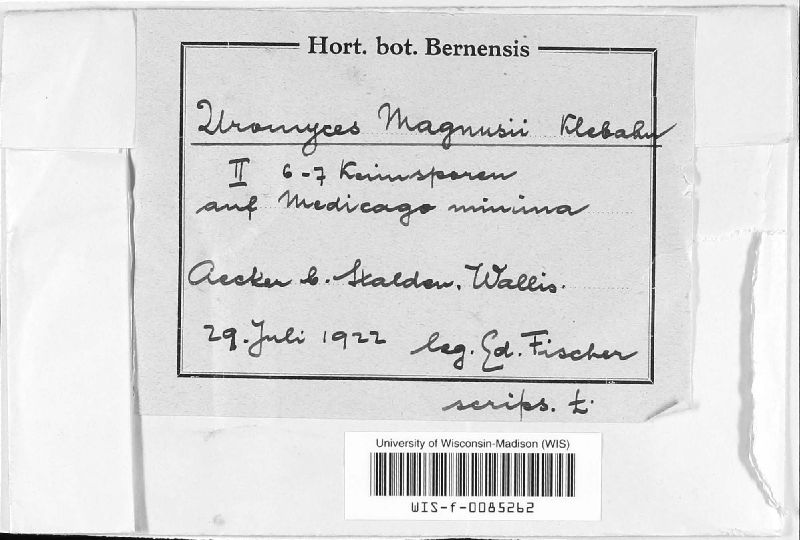 Hort. bot. Bernensis
Uromyces Magnusii Klebahn
II 6-7 Keimsporen
auf Medicago minima
Aecker b. Stalden, Wallis.
29. Juli 1922 leg. Ed. Fischer
scrips.
University of Wisconsin-Madison (WIS)
WIS-f-0085262